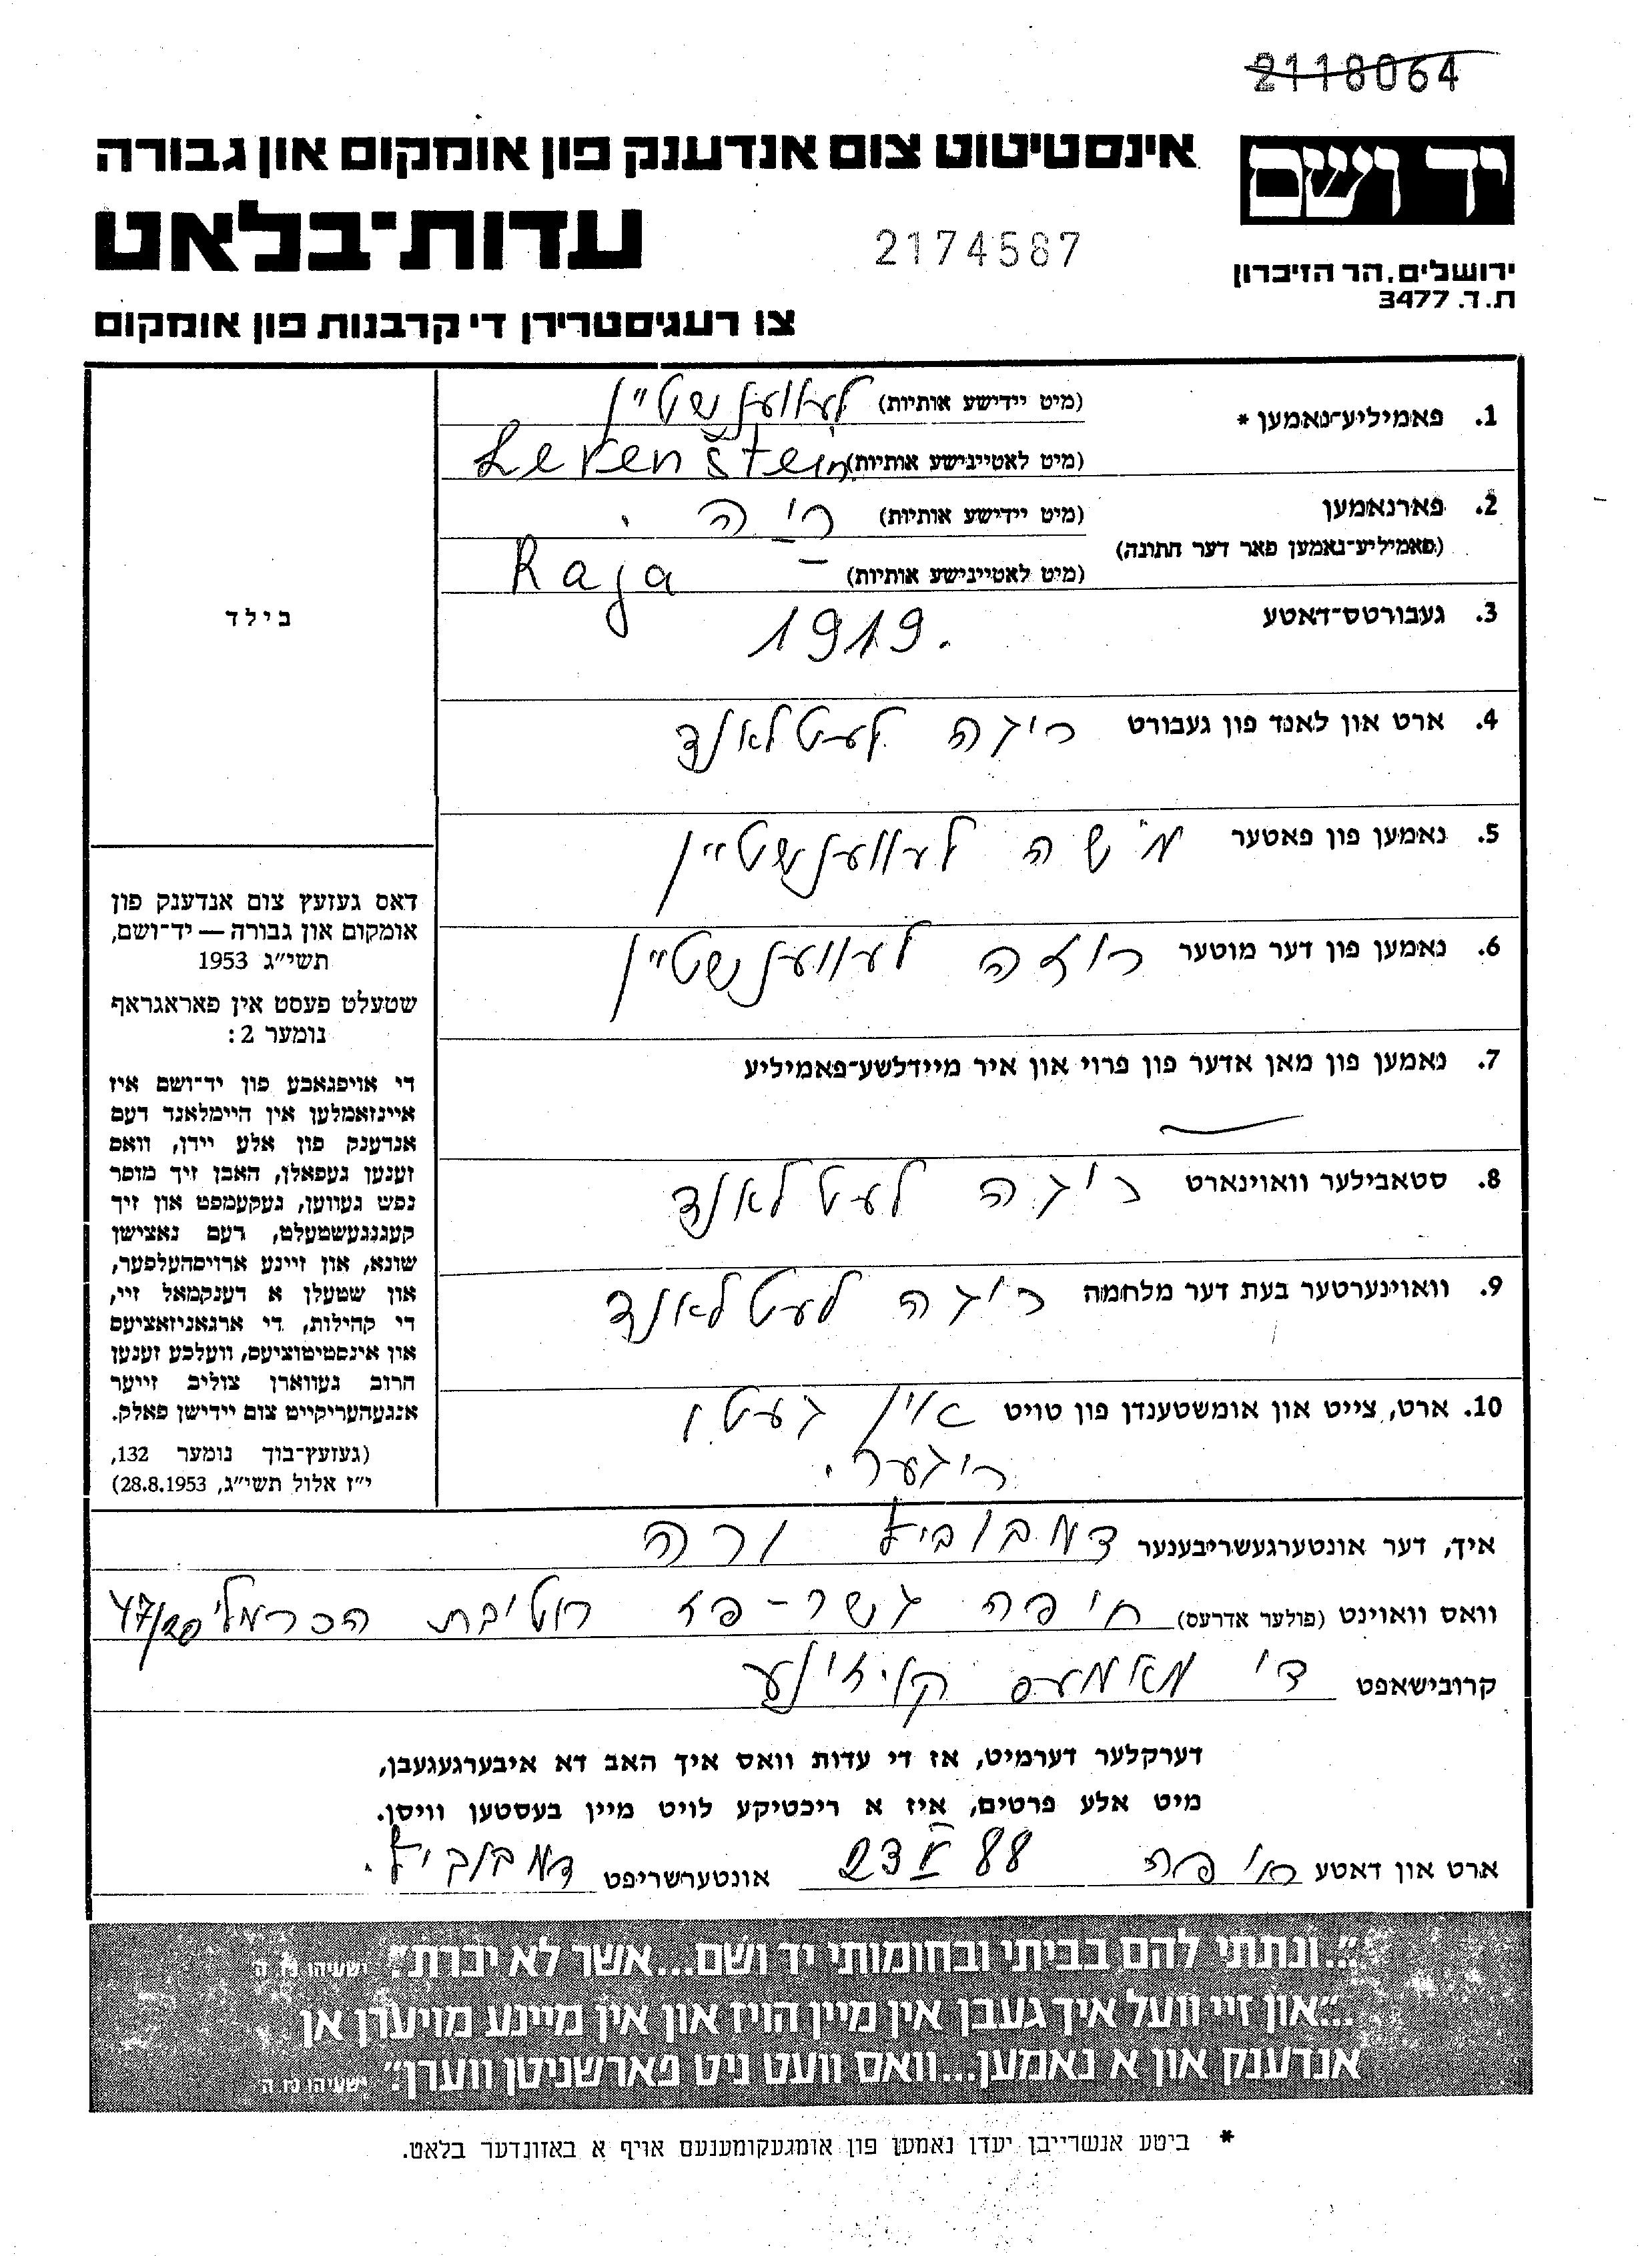 2118064
יד ושם
אינסטיטוט צום אנדענק פון אומקום און גבורה
עדות־בלאט
2174587
ירושלים, הר הזיכרון
ת.ד. 3477
צו רעגיסטרירן די קרבנות פון אומקום
1. פאמיליע־נאמען *
(מיט יידישע אותיות) לעווענשטיין
(מיט לאטיינישע אותיות) Levenštein
2. פארנאמען
(פאמיליע־נאמען פאר דער חתונה)
(מיט יידישע אותיות) ריה
(מיט לאטיינישע אותיות) Raja
3. געבורטס־דאטע 1919.
4. ארט און לאנד פון געבורט ריגה לעטלאנד
5. נאמען פון פאטער משה לעווענשטיין
6. נאמען פון דער מוטער רוזה לעווענשטיין
7. נאמען פון מאן אדער פון פרוי און איר מיידלשע־פאמיליע
8. סטאבילער וווינארט ריגה לעטלאנד
9. וווינערטער בעת דער מלחמה ריגה לעטלאנד
10. ארט, צייט און אומשטענדן פון טויט אין געטו
ריגער.
בילד
דאס געזעץ צום אנדענק פון
אומקום און גבורה — יד־ושם,
תשי״ג 1953
שטעלט פעסט אין פאראגראף
נומער 2:
די אויפגאבע פון יד־ושם איז
איינזאמלען אין היימלאנד דעם
אנדענק פון אלע יידן, וואס
זענען געפאלן, האבן זיך מוסר
נפש געווען, געקעמפט און זיך
קעגנגעשטעלט, דעם נאצישן
שונא, און זיינע ארויסהעלפער,
און שטעלן א דענקמאל זיי,
די קהילות, די ארגאניזאציעס
און אינסטיטוציעס, וועלכע זענען
חרוב געווארן צוליב זייער
אנגעהעריקייט צום יידישן פאלק.
(געזעץ־בוך נומער 132,
י״ז אלול תשי״ג, 28.8.1953)
איך, דער אונטערגעשריבענער דמבוביץ ורה
וואס וווינט (פולער אדרעס) חיפה גשר-פז חטיבת הכרמלי 47/20
קרובישאפט די מאמעס קוזינע
דערקלער דערמיט, אז די עדות וואס איך האב דא איבערגעגעבן,
מיט אלע פרטים, איז א ריכטיקע לויט מיין בעסטען וויסן.
ארט און דאטע חיפה 88 23 אונטערשריפט דמבוביץ.
״...ונתתי להם בביתי ובחומותי יד ושם...אשר לא יכרת״. ישעיהו נו ה
״...און זיי וועל איך געבן אין מיין הויז און אין מיינע מויערן אן
אנדענק און א נאמען...וואס וועט ניט פארשניטן ווערן.״ ישעיהו נו ה
* ביטע אנשרייבן יעדן נאמען פון אומגעקומענעם אויף א באזונדער בלאט.